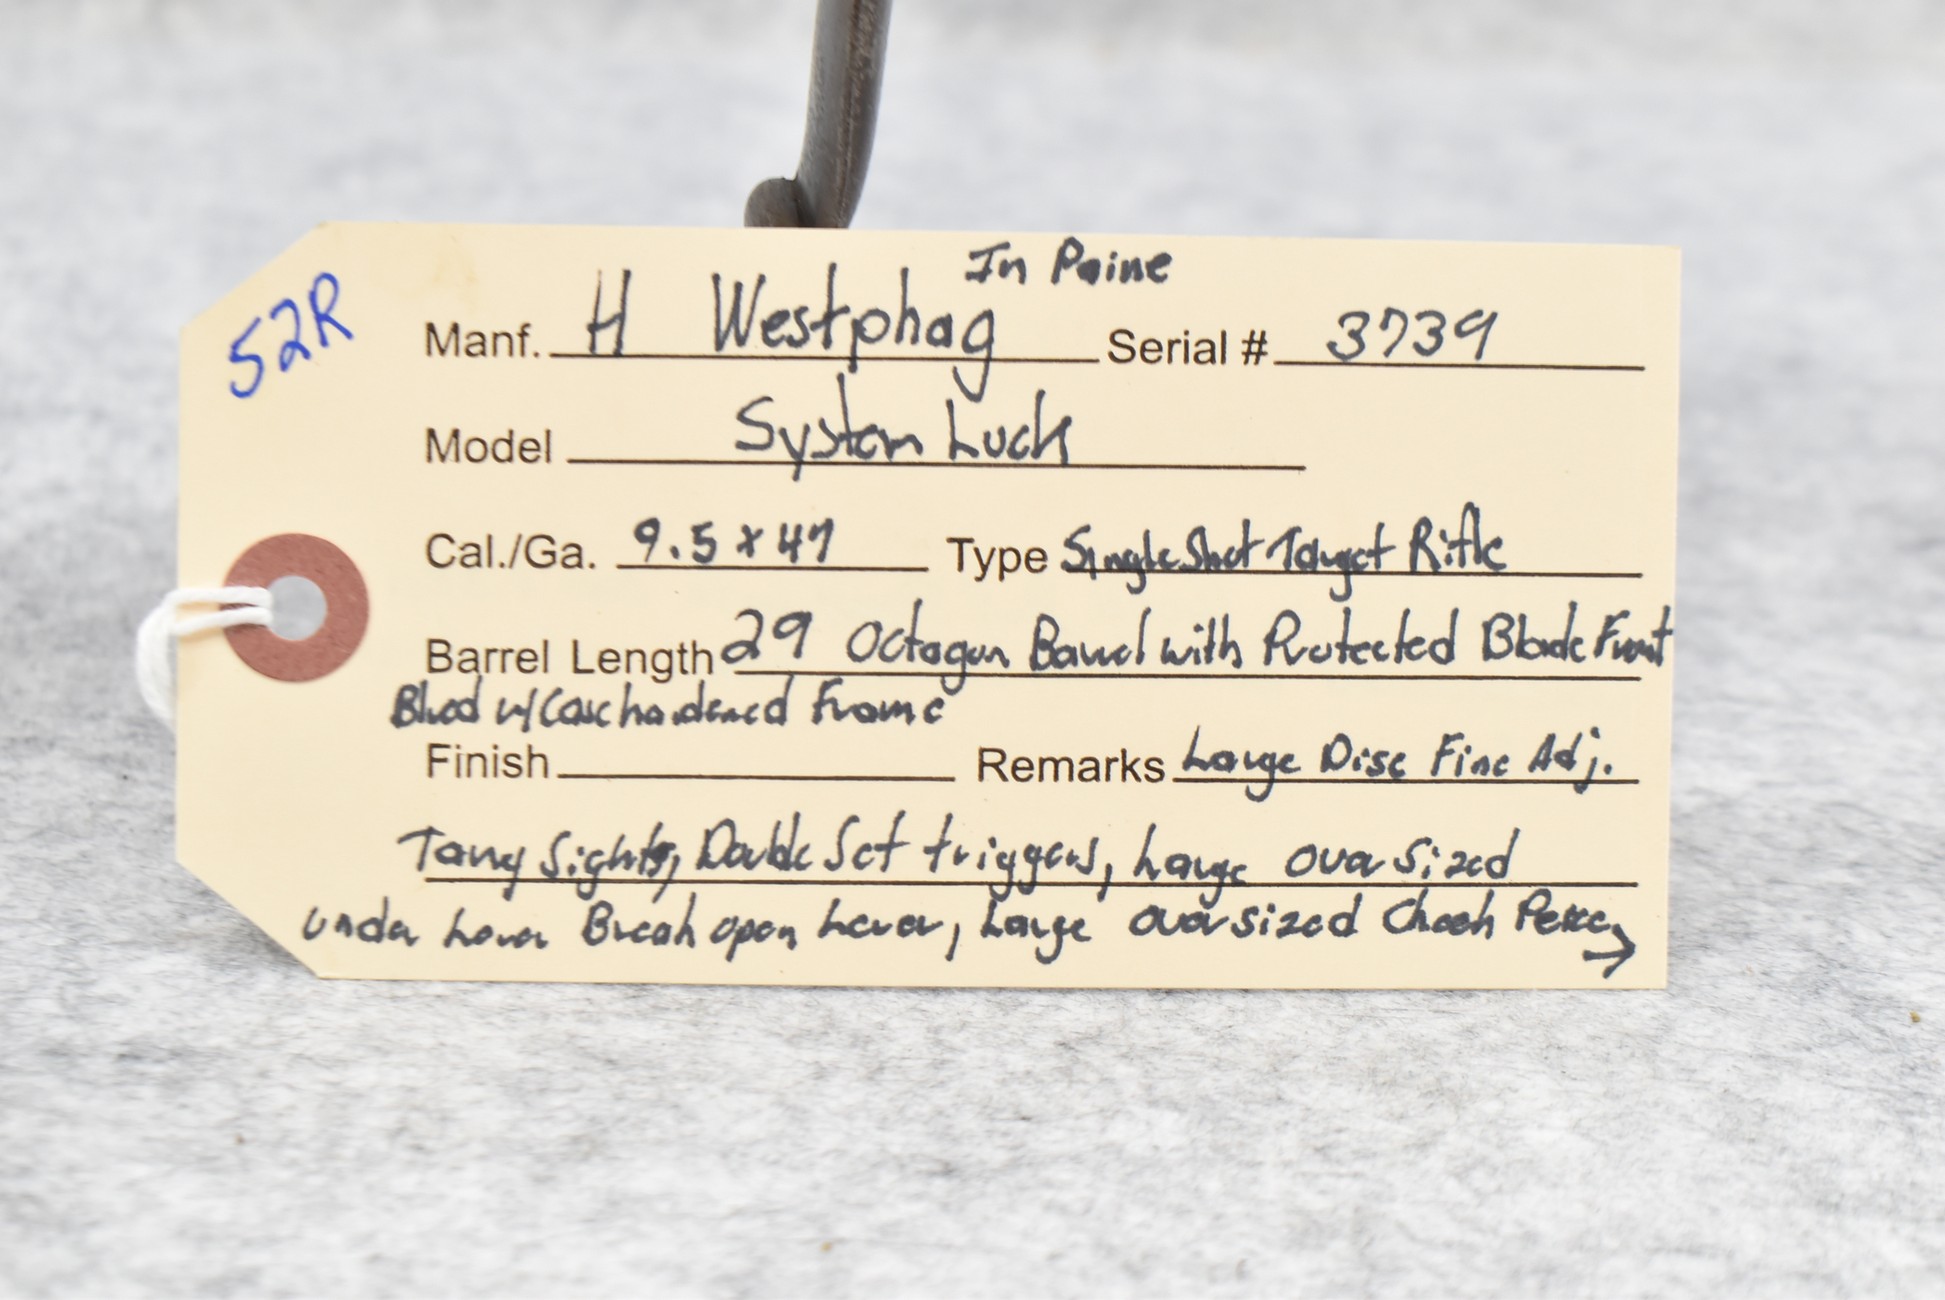 52R
In Paine
Manf. H Westphag Serial # 3739
Model System Luck
Cal./Ga. 9.5 x 47 Type Single Shot Target Rifle
Barrel Length 29 Octagon Barrel with Protected Blade Front
Blued w/Casehardened Frame
Finish Remarks Large Disc Fine Adj.
Tang Sights, Double Set triggers, Large oversized
under Lever Break open Lever, Large oversized Cheek Peice,
→